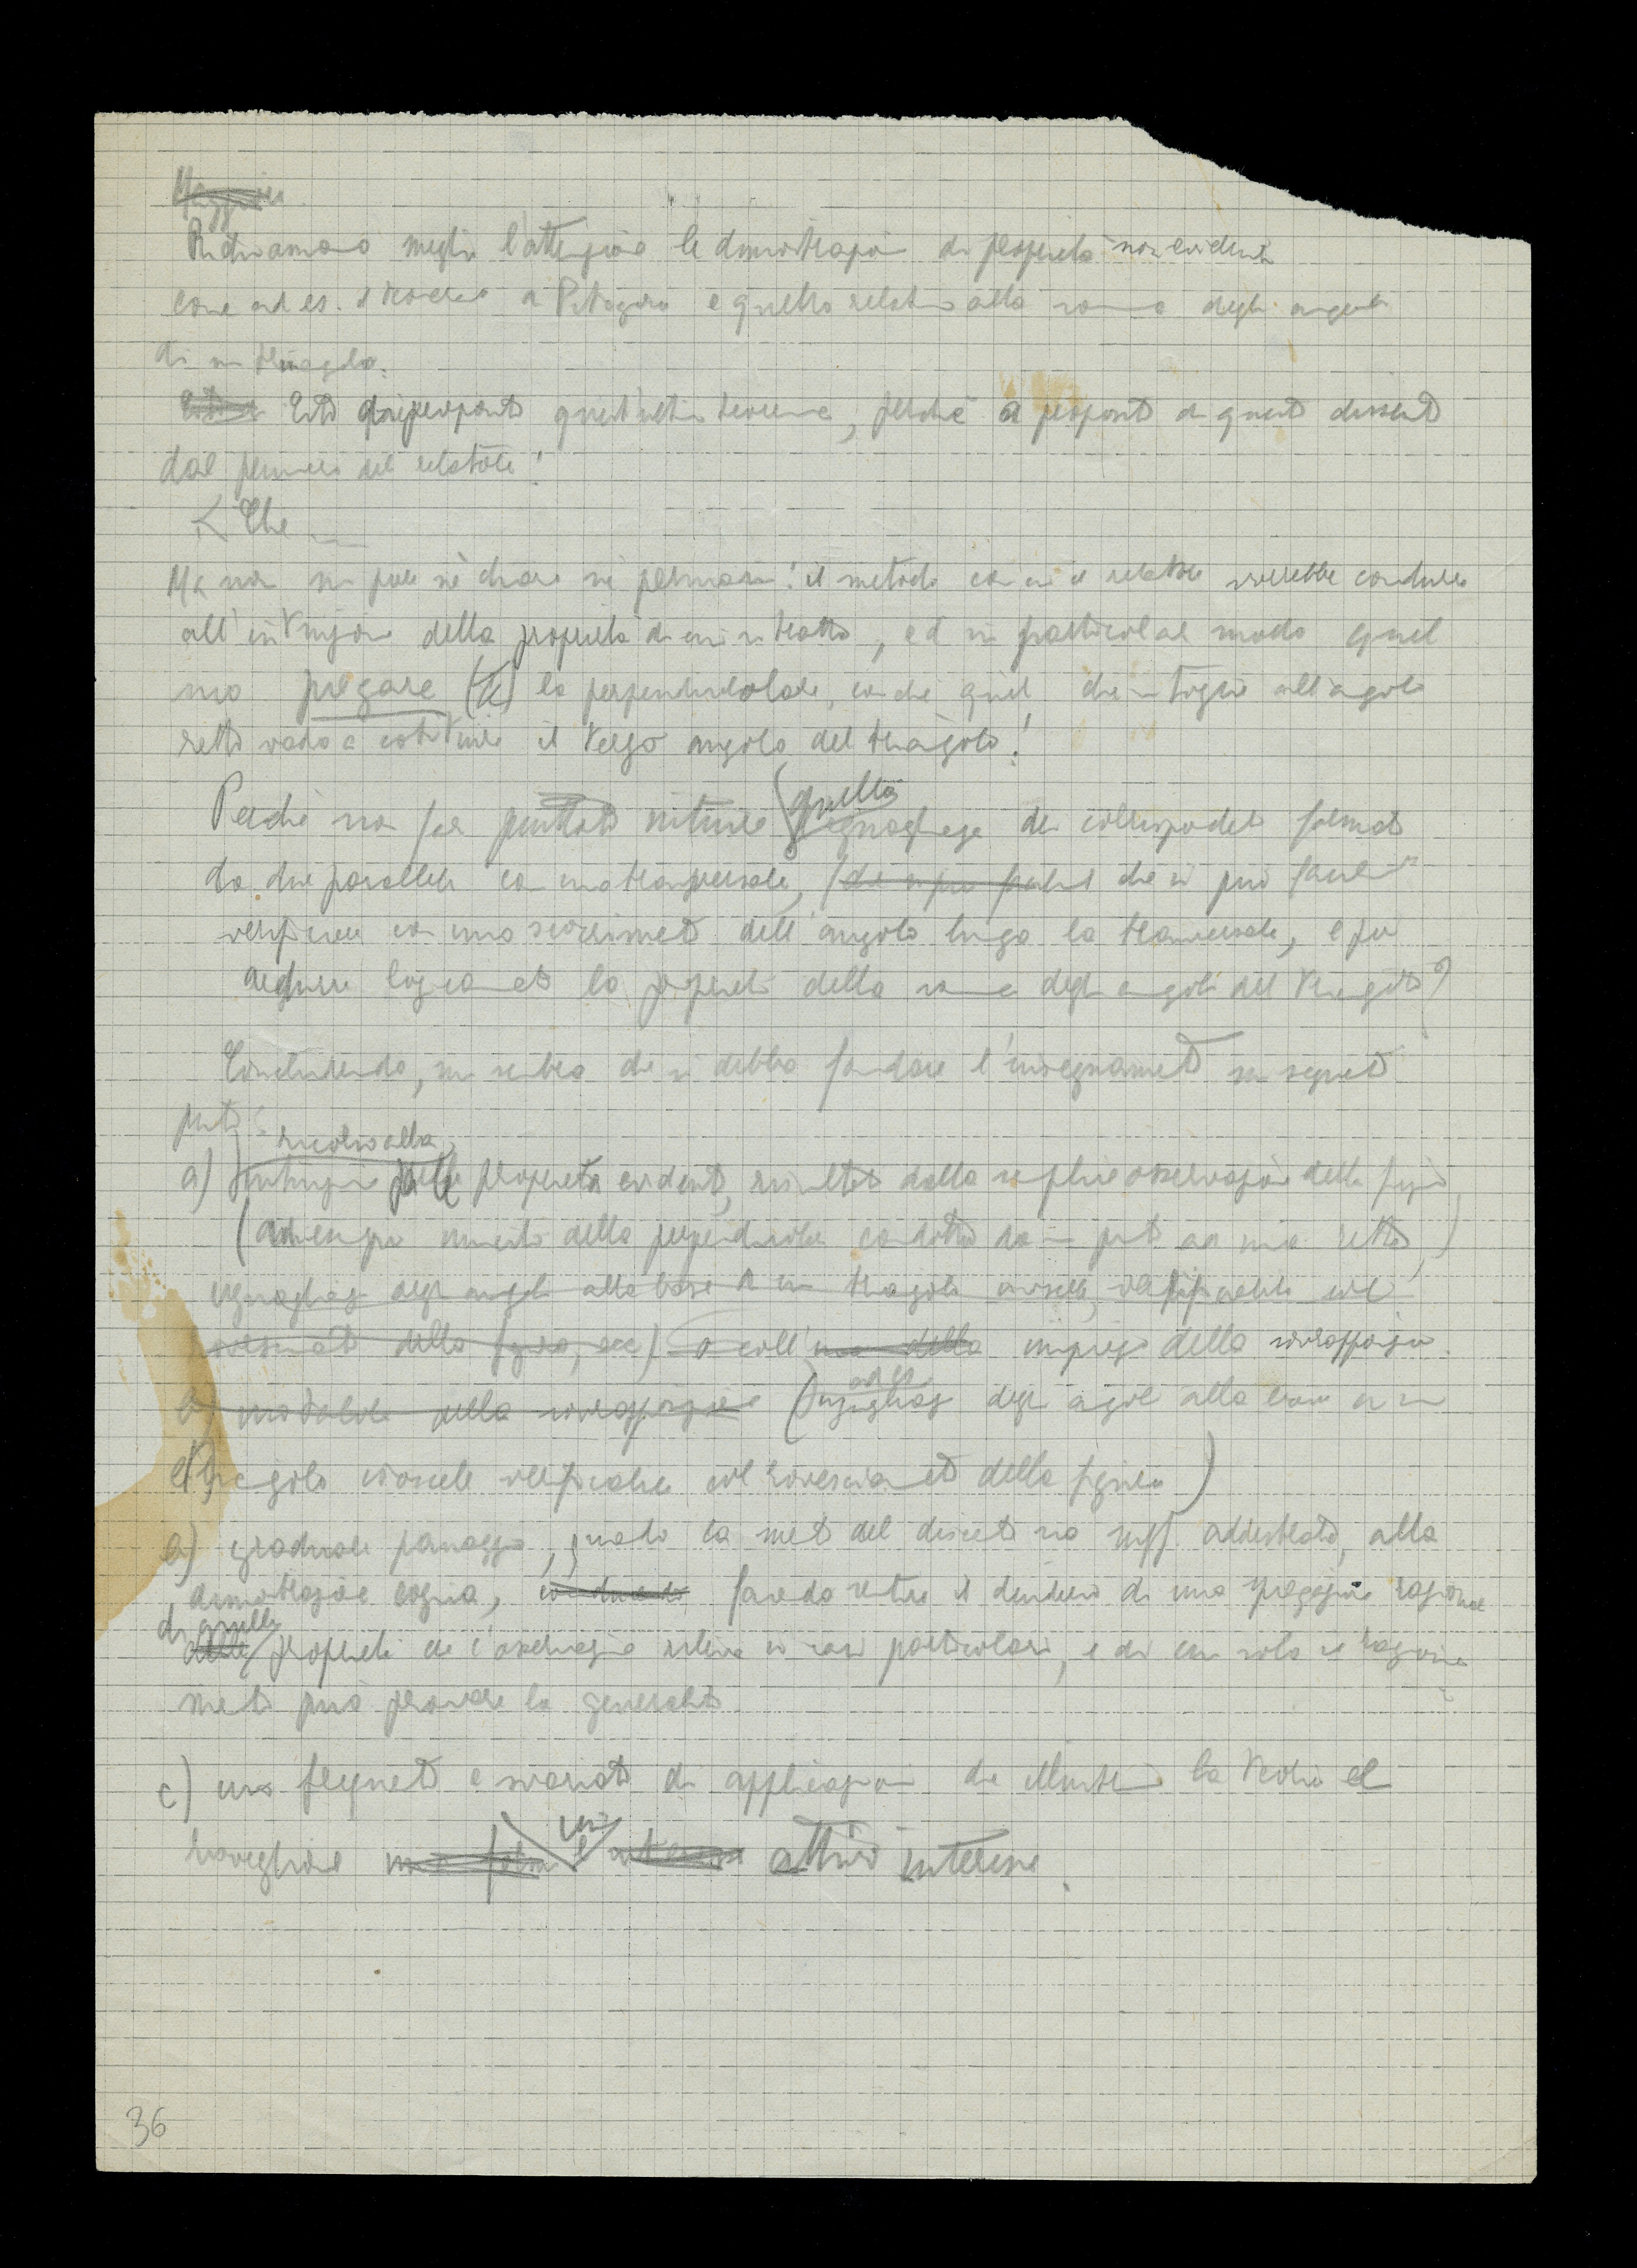 Richiamano meglio l'attenzione le dimostrazioni di proprietà non evidenti
come ad es. il teorema di Pitagora e quello relativo alla somma degli angoli
di un triangolo.
Cito quest'ultimo teorema, perchè a proposito di questo dissento
dal pensiero del relatore!
Che
Ma non mi pare nè chiaro nè il metodo con cui il relatore vorrebbe condurre
all'intuizione della proprietà di cui si tratta, ed in particolar modo quel
suo piegare (!) la perpendicolare, con che quel che si toglie all'angolo
retto vada a costituire il terzo angolo del triangolo!
Perchè non far piuttosto intuire quella eguaglianza dei corrispondenti formati
da due parallele con una trasversale, che si può facilmte
verificare con uno scorrimento dell'angolo lungo la trasversale, e poi
dedurre logicamente la proprietà della somma degli angoli del triangolo?
Concludendo, mi sembra che si debba fondare l'insegnamento sui seguenti
punti:
ricorso alla
a) intuizione per le proprietà evidenti, risultati dalla semplice osservazione della figura
(ad esempio unicità della perpendicolare condotta da un punto ad una retta,)
uguaglianza degli angoli alla base di un triangolo isoscele, verificabile col
rovesciamento della figura, ecc) o coll'uso della impiego della sovrapposizione.
b) modalità della sovrapposizione (ad es uguaglianza degli angoli alla base di un
triangolo isoscele verificabile col rovesciamento della figura)
b) graduale passaggio, quando la mente del discente sia suff. addestrata, alla
dimostrazione logica, conducendo facendo sentire il desiderio di una spiegazione razionale
di quelle proprietà che l'osservazione rileva in casi particolari, e di cui solo il ragiona
mento può provare la generalità
c) uso frequente e svariato di applicazioni che illustrino la teoria ed
risveglino vivo attivo interesse.
36